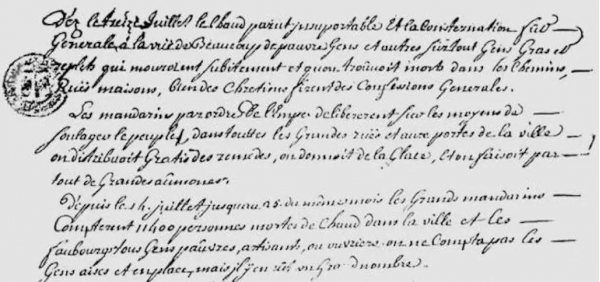 Dez le treize Juillet le chaud parut insuportable Et la Consternation fut
Generale, à la vüe de Beaucoup de pauvre Gens et autres surtout Gens Gras et
replets qui mouroient subitement et qu'on trouvoit morts dans les Chemins,
Ruës maisons, bien des Chretiens firent des Confessions Generales.
Les mandarins par ordre de l'Emper deliberent sur les moyens de
soulager le peuple, dans touttes les Grandes ruës et aux portes de la ville
on distribuoit Gratis des remedes, on donnoit de la Glace, et on faisoit par
tout de Grandes aûmones.
Depuis le 14 Juillet jusqu'au 25 du même mois les Grands mandarins
Compterent 11400 personnes mortes de Chaud dans la ville et les
faubourgs tous Gens paûvres, artisants, ou ouvriers on ne Compta pas les
Gens aisés et en place, mais il y en eût un Grand nombre.